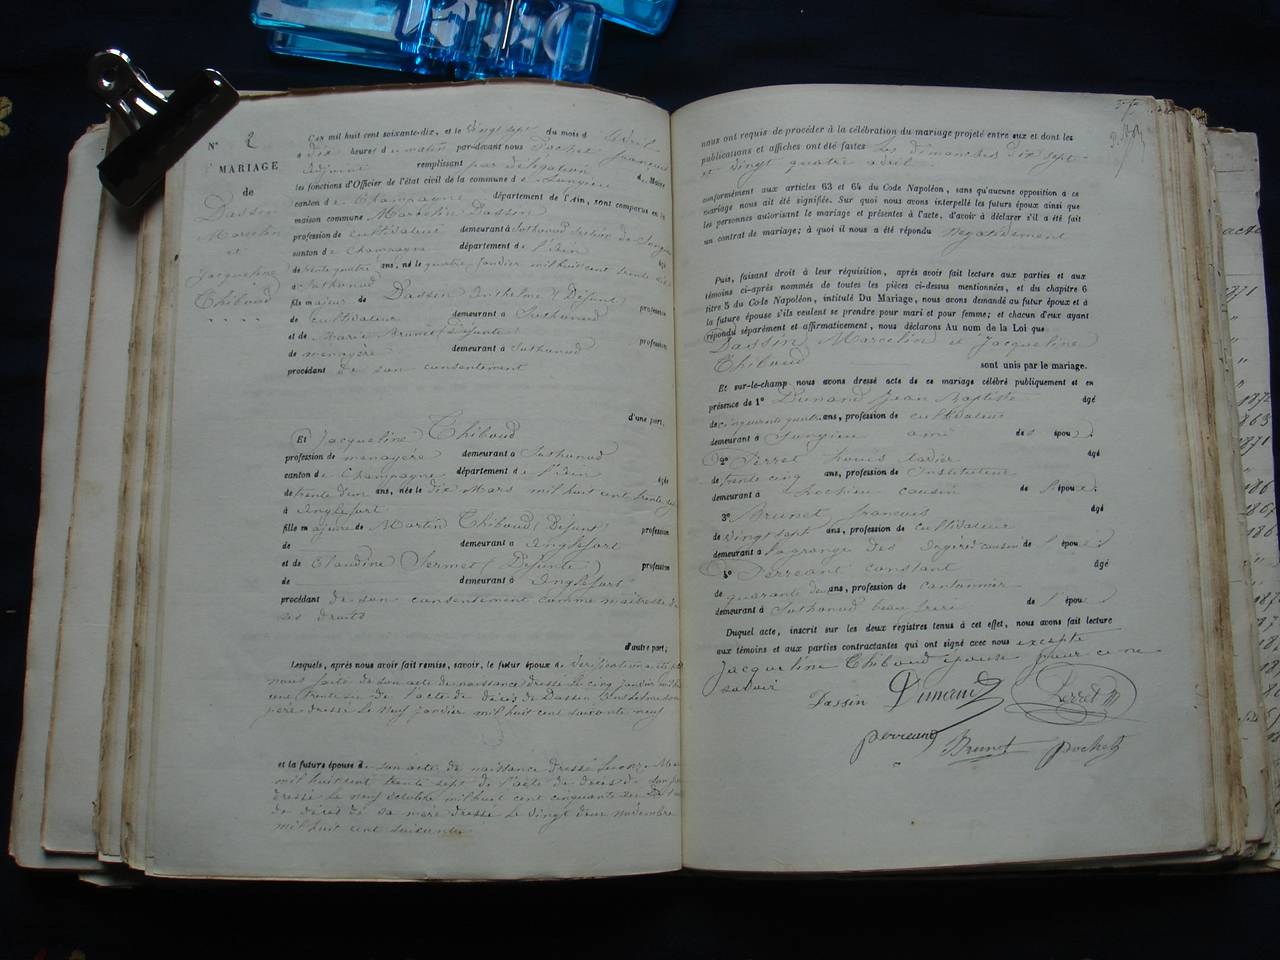 N° 2
MARIAGE
de
Dassin
Marcelin
et
Jacqueline
Thiboud
L'an mil huit cent soixante-dix, et le vingt sept du mois d'Avril
à dix heures du matin par-devant nous Pochet François
Adjoint remplissant par délégation de Maire
les fonctions d'Officier de l'état civil de la commune de Songieu
canton de Champagne département de l'Ain, sont comparus en la
maison commune Marcelin Dassin
profession de cultivateur demeurant à Sothonod section de Songieu
canton de Champagne département de l'Ain âgé
de trente quatre ans, né le quatre Janvier mil huit cent trente six
à Sothonod
fils majeur de Dassin Anthelme (Défunt) profession
de cultivateur demeurant à Sothonod
et de Marie Brunet (Défunte) profession
de menagère demeurant à Sothonod
procédant de son consentement
d'une part;
Et Jacqueline Thiboud
profession de menagère demeurant à Sothonod
canton de Champagne département de l'Ain âgée
de trente d'un ans, née le dix Mars mil huit cent trente sept
à Anglefort
fille majeure de Martin Thiboud (Défunt) profession
de demeurant à Anglefort
et de Claudine Sermet (Défunte) profession
de demeurant à Anglefort
procédant de son consentement comme maitresse de
ses droits
d'autre part;
Lesquels, après nous avoir fait remise, savoir, le futur époux de
nous faite de son acte de naissance dressé le cinq janvier mil huit
cent trente six de l'acte de décès de Dassin Anthelme son
père dressé le neuf janvier mil huit cent soixante neuf
et la future épouse de son acte de naissance dressé le onze Mars
mil huit cent trente sept de l'acte de décès de son père
dressé le neuf octobre mil huit cent cinquante
de décès de sa mère dressé le vingt deux novembre
mil huit cent soixante
nous ont requis de procéder à la célébration du mariage projeté entre eux et dont les
publications et affiches ont été faites les dimanches dix sept
et vingt quatre avril
conformément aux articles 63 et 64 du Code Napoléon, sans qu'aucune opposition à ce
mariage nous ait été signifiée. Sur quoi nous avons interpellé les futurs époux ainsi que
les personnes autorisant le mariage et présentes à l'acte, d'avoir à déclarer s'il a été fait
un contrat de mariage; à quoi il nous a été répondu négativement
Puis, faisant droit à leur réquisition, après avoir fait lecture aux parties et aux
témoins ci-après nommés de toutes les pièces ci-dessus mentionnées, et du chapitre 6
titre 5 du Code Napoléon, intitulé Du Mariage, nous avons demandé au futur époux et à
la future épouse s'ils veulent se prendre pour mari et pour femme; et chacun d'eux ayant
répondu séparément et affirmativement, nous déclarons Au nom de la Loi que
Dassin Marcelin et Jacqueline
Thiboud sont unis par le mariage.
Et sur-le-champ nous avons dressé acte de ce mariage célébré publiquement et en
présence de 1° Dunand Jean Baptiste âgé
de cinquante quatre ans, profession de cultivateur
demeurant à Songieu ami des époux.
2° Perret Louis Xavier âgé
de trente cinq ans, profession de Instituteur
demeurant à Lhochieu cousin de l'épouse.
3° Brunet François âgé
de vingt sept ans, profession de cultivateur
demeurant à Lagrange des cousin de l'épou
4° Perreant constant âgé
de quarante deux ans, profession de cantonnier
demeurant à Sothonod beau frère de l'épou
Duquel acte, inscrit sur les deux registres tenus à cet effet, nous avons fait lecture
aux témoins et aux parties contractantes qui ont signé avec nous excepté
Jacqueline Thiboud épouse pour ce ne
savoir
Dassin Dunand Perret
perreand Brunet pochet